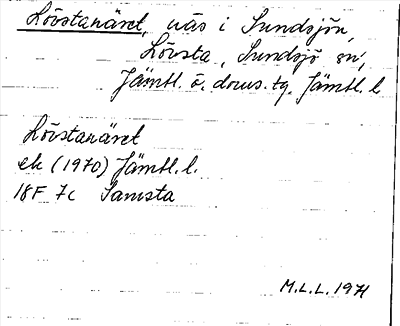 Lövstanäret, näs i Sundsjön,
Lövsta, Sundsjö sn,
Jämtl. ö. doms. tg. Jämtl. l
Lövstanäret
ek (1970) Jämtl. l.
18F 7c Samsta
M.L.L. 1971